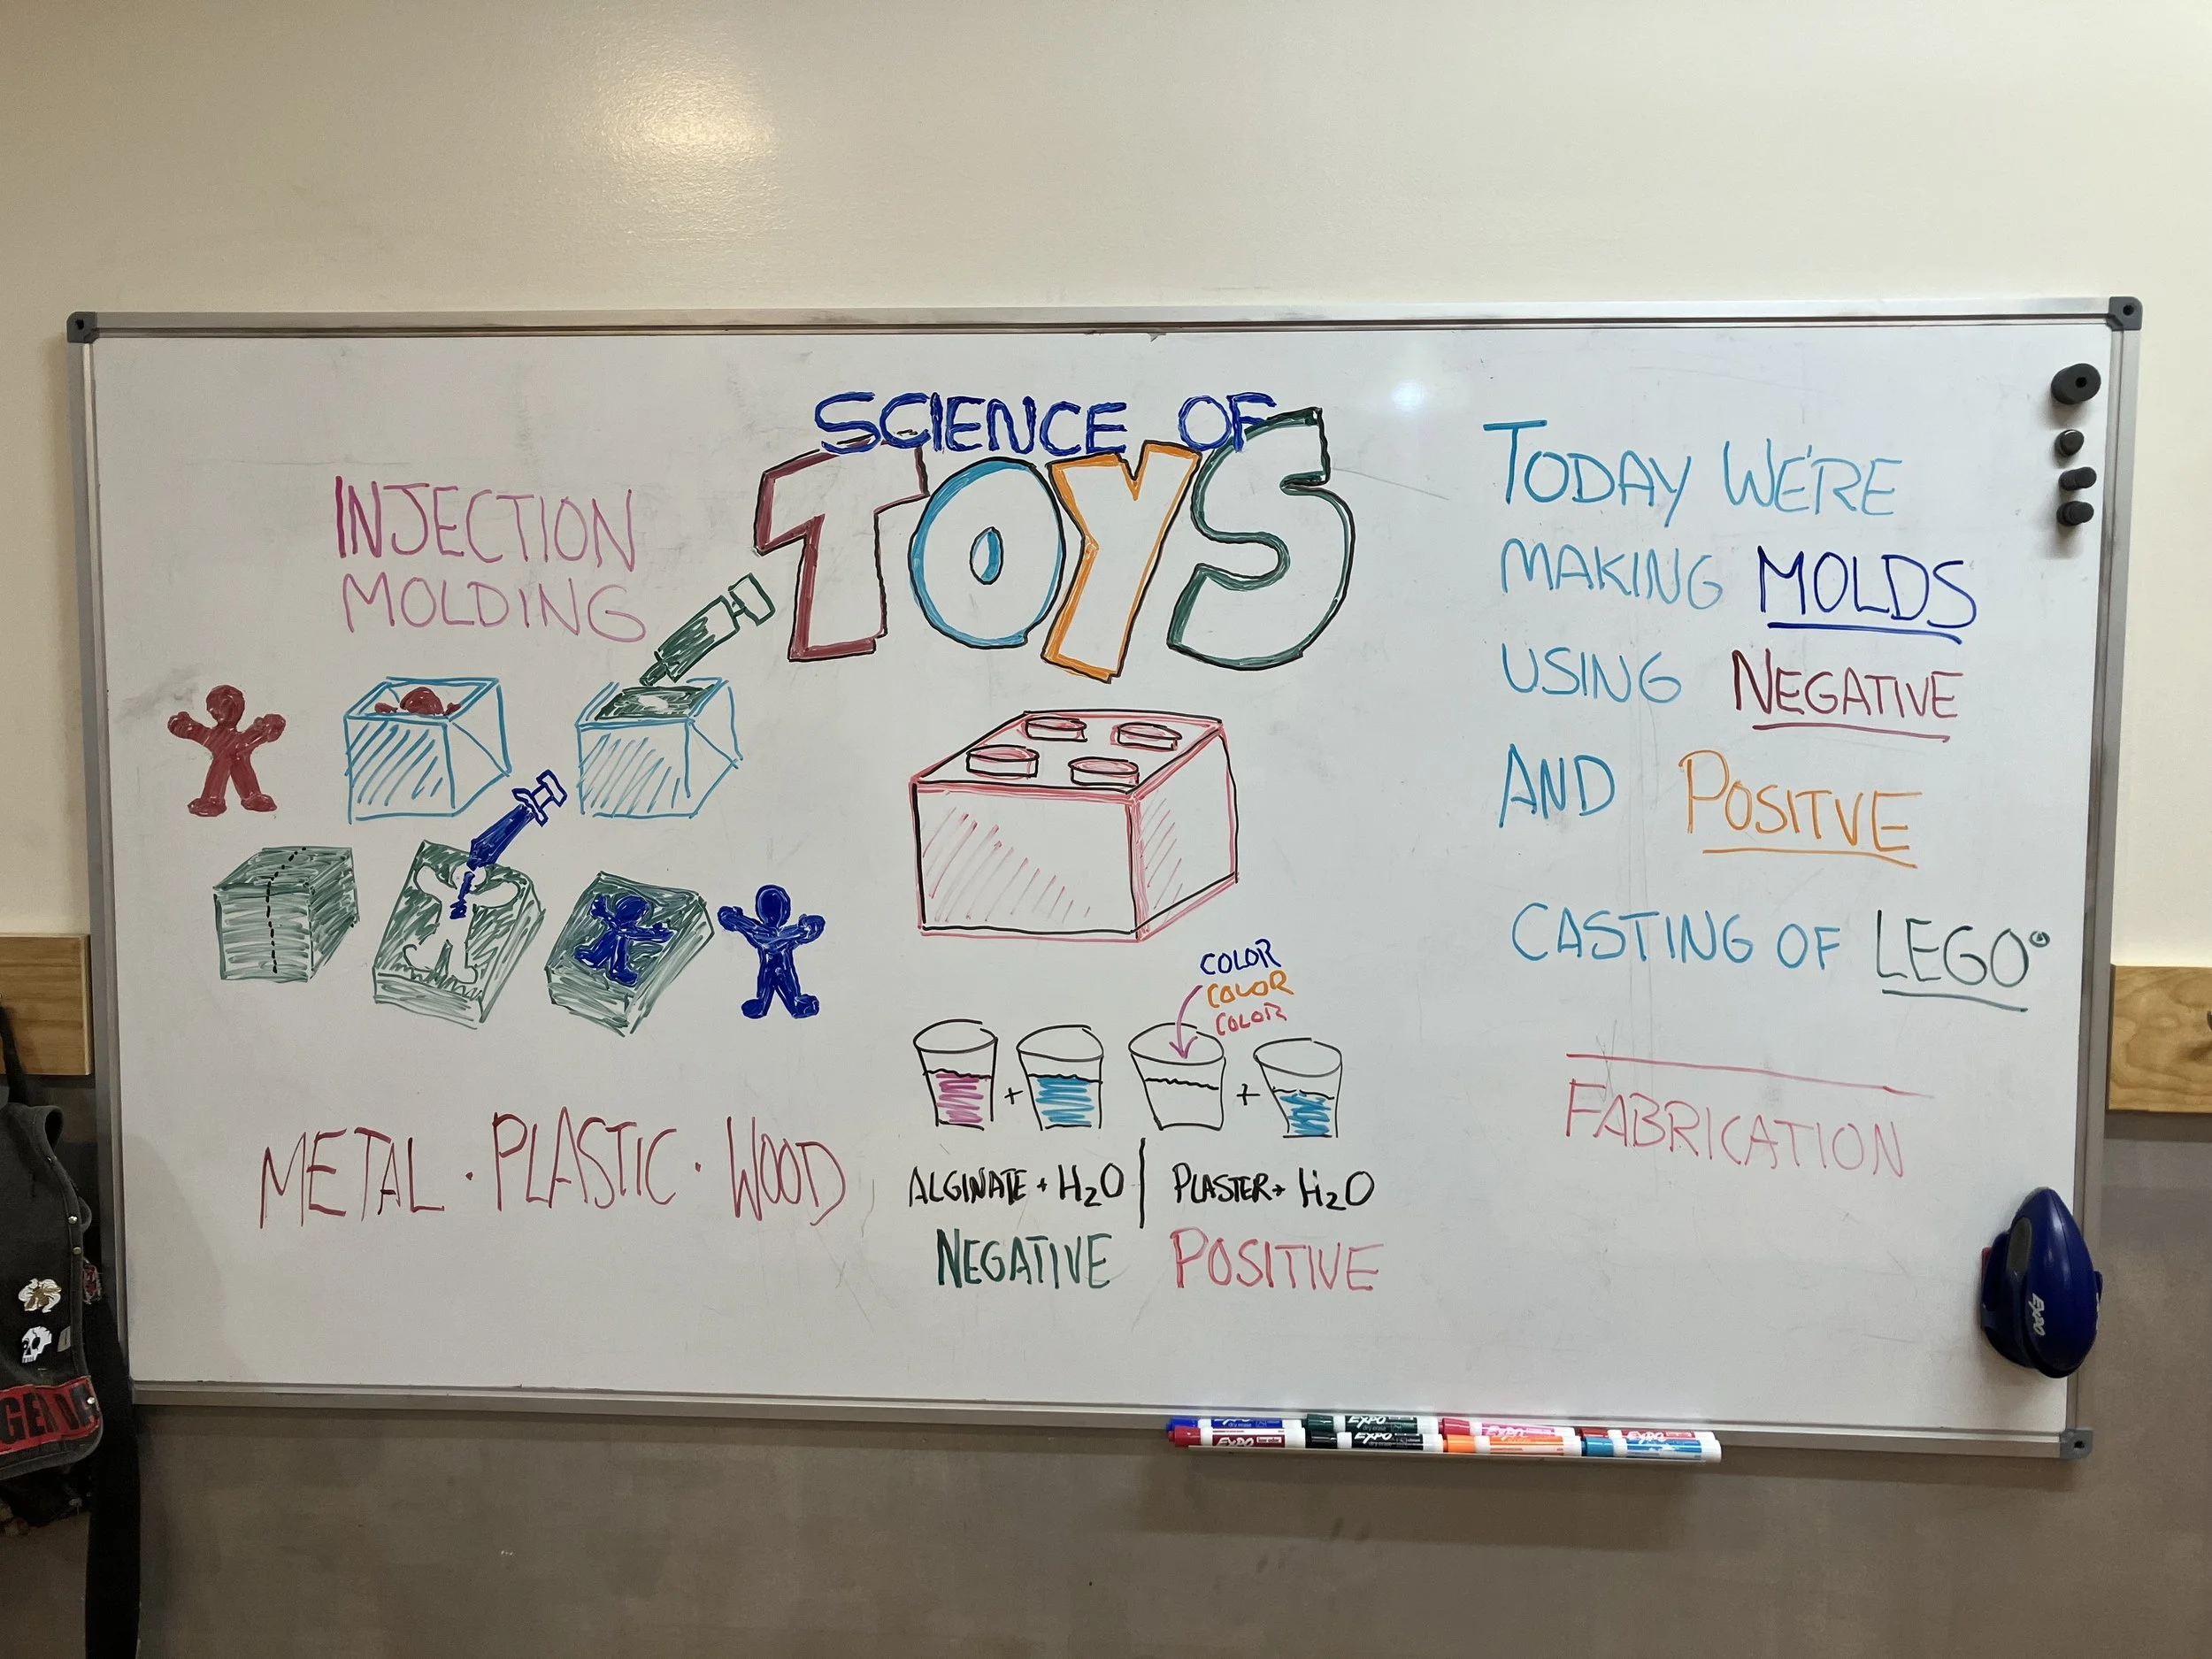 SCIENCE OF
TOYS
INJECTION
MOLDING
METAL · PLASTIC · WOOD
COLOR
COLOR
COLOR
+ +
ALGINATE + H₂O | PLASTER + H₂O
NEGATIVE POSITIVE
TODAY WE'RE
MAKING MOLDS
USING NEGATIVE
AND POSITVE
CASTING OF LEGO°
FABRICATION
EXPO
EXPO
EXPO
EXPO
EXPO
EXPO
EXPO